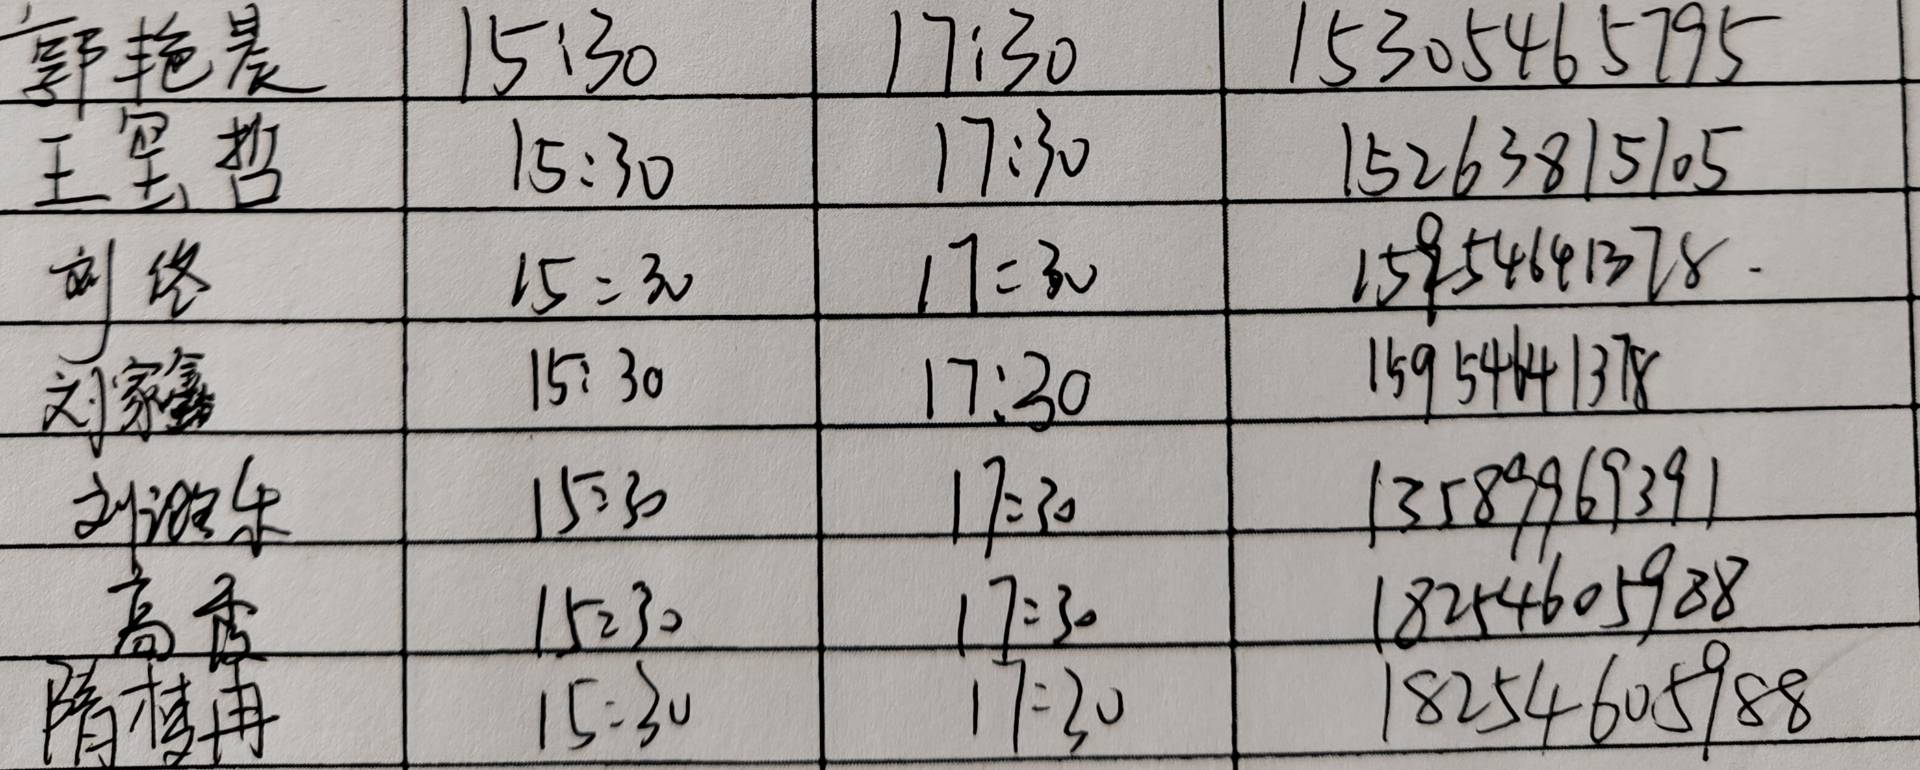 郭艳晨 15:30 17:30 15305465795
王罡哲 15:30 17:30 15263815105
刘佟 15:30 17:30 15954641378.
刘家鑫 15:30 17:30 15954641378
刘 乐 15:30 17:30 13589969391
高秀 15:30 17:30 18254605988
隋 冉 15:30 17:30 18254605988